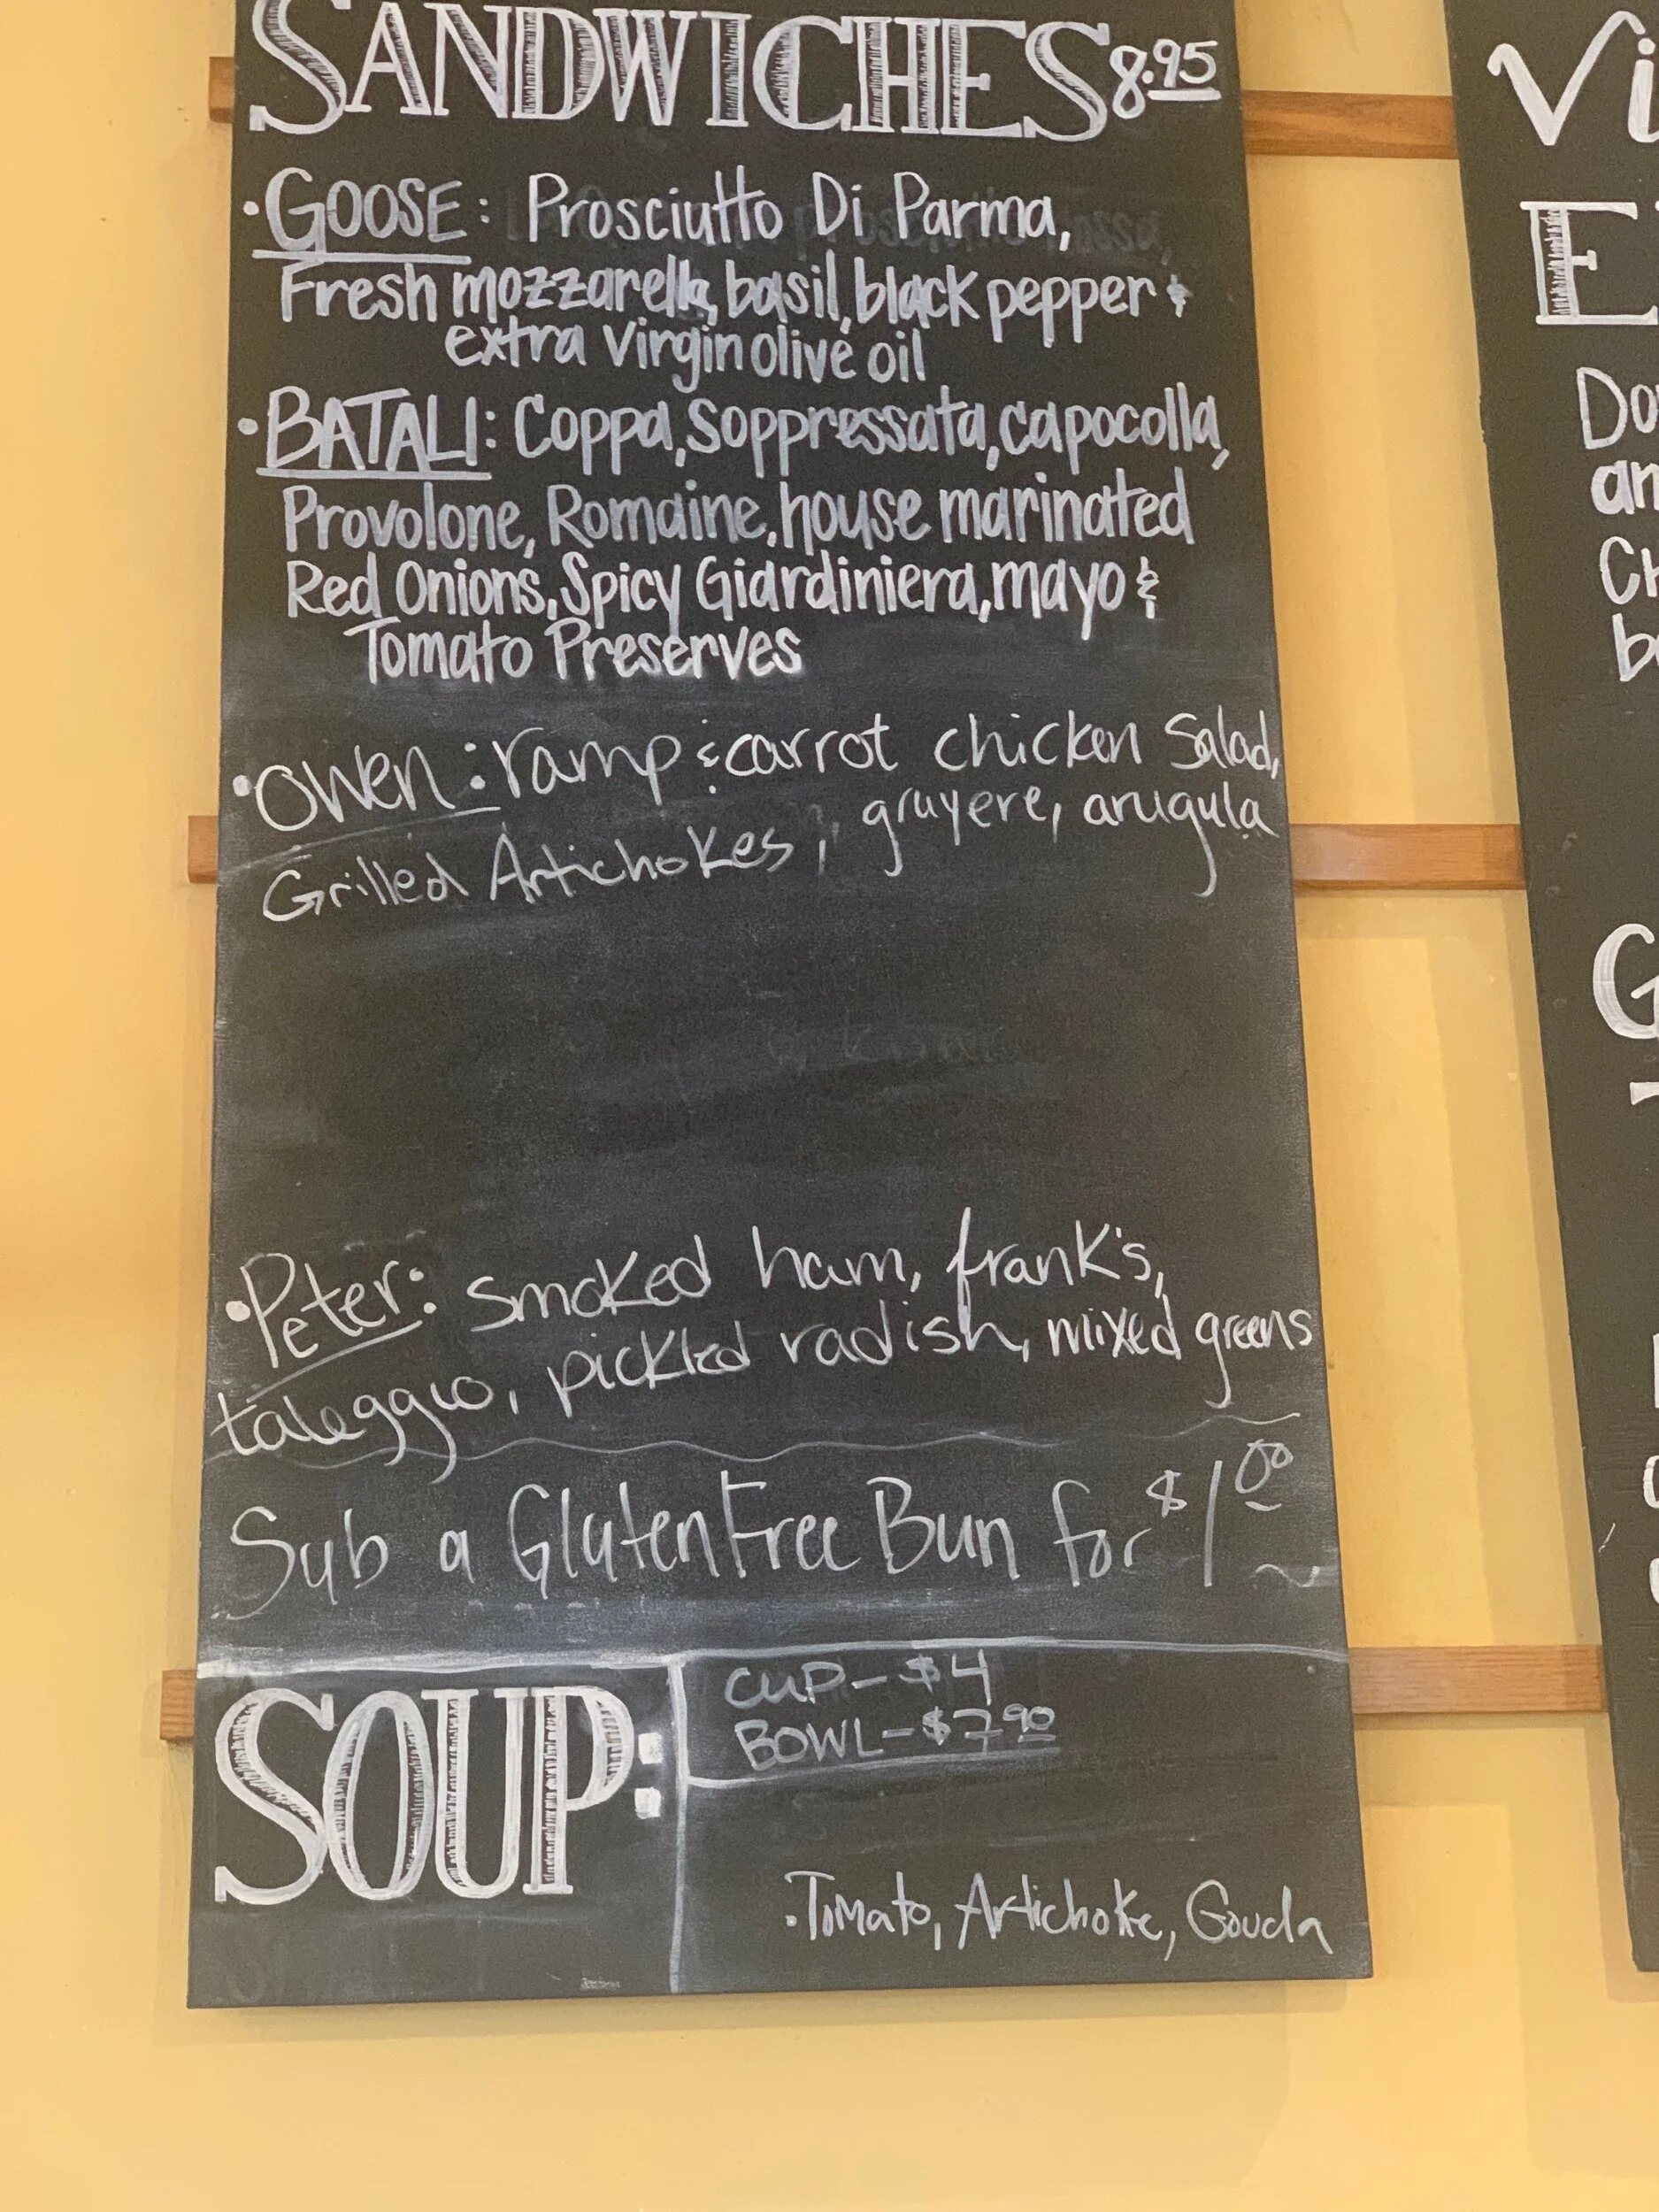 SANDWICHES 8.95
• GOOSE: Prosciutto Di Parma,
Fresh mozzarella, basil, black pepper &
extra virgin olive oil
• BATALI: Coppa, Soppressata, capocolla,
Provolone, Romaine, house marinated
Red Onions, Spicy Giardiniera, mayo &
Tomato Preserves
• OWEN: ramp & carrot chicken Salad,
Grilled Artichokes, gruyere, arugula
• Peter: smoked ham, frank's,
taleggio, pickled radish, mixed greens
Sub a Gluten Free Bun for $1.00
SOUP:
CUP - $4
BOWL - $7.90
• Tomato, Artichoke, Gouda
Vi
E
Do
an
Ch
b
G